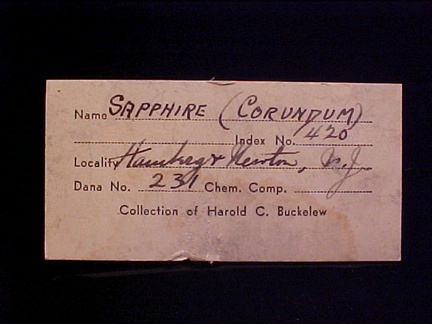 Name SAPPHIRE (CORUNDUM)
Index No. 420
Locality Hamburg & Newton, N.J.
Dana No. 231 Chem. Comp.
Collection of Harold C. Buckelew